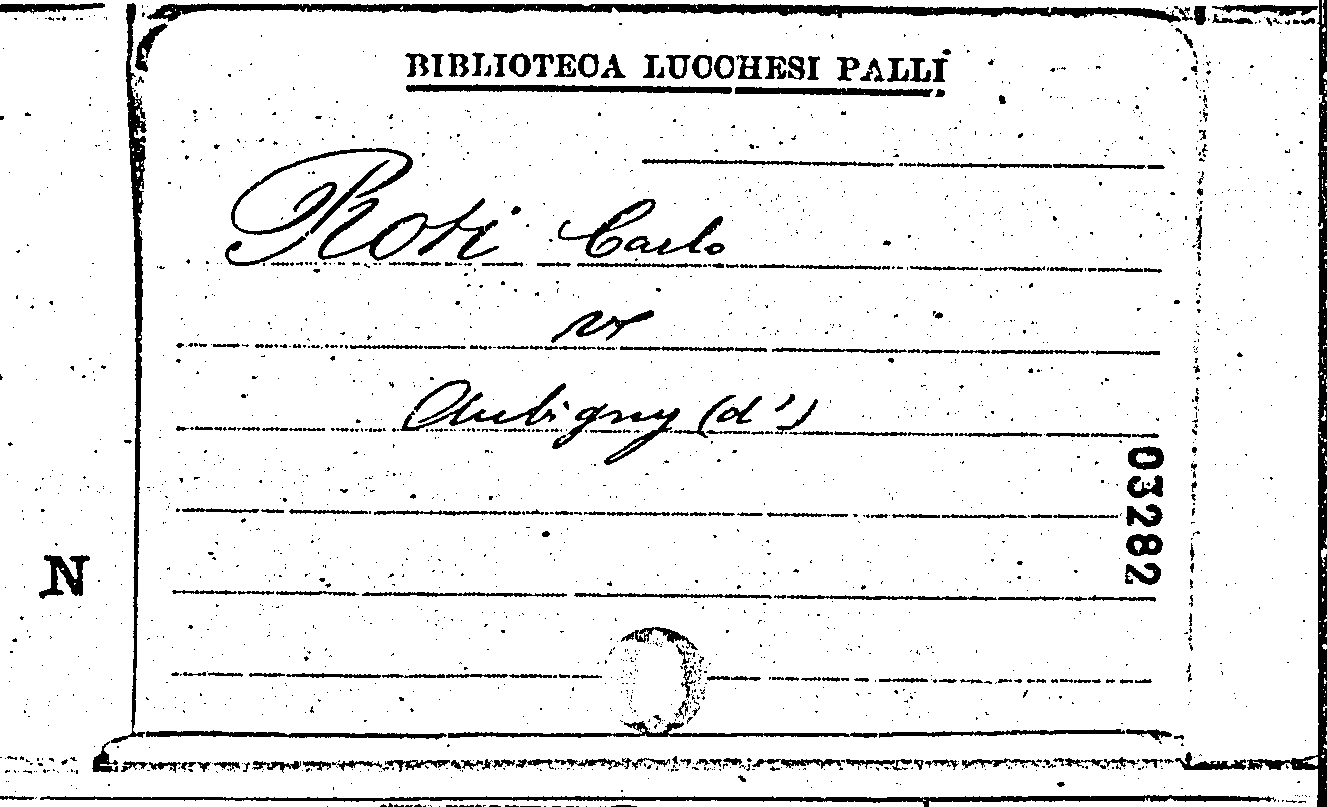 BIBLIOTECA LUCCHESI PALLI
Roti Carlo
Aubigny (d')
03282
N